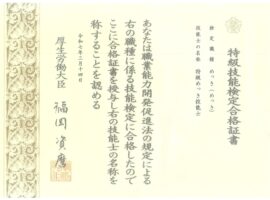 特級技能検定合格証書
検定職種 めっき(めっき)
技能士の名称 特級めっき技能士
あなたは職業能力開発促進法の規定による
右の職種に係る技能検定に合格したので
ここに合格証書を授与し右の技能士の名称を
称することを認める
令和七年三月十四日
厚生労働大臣
福岡資麿